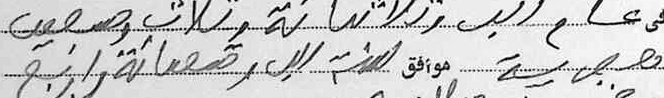 في عام الف وثلاثمائة وثلاث وسبعين
هجرية موافق لسنة الف وتسعمائة واربع